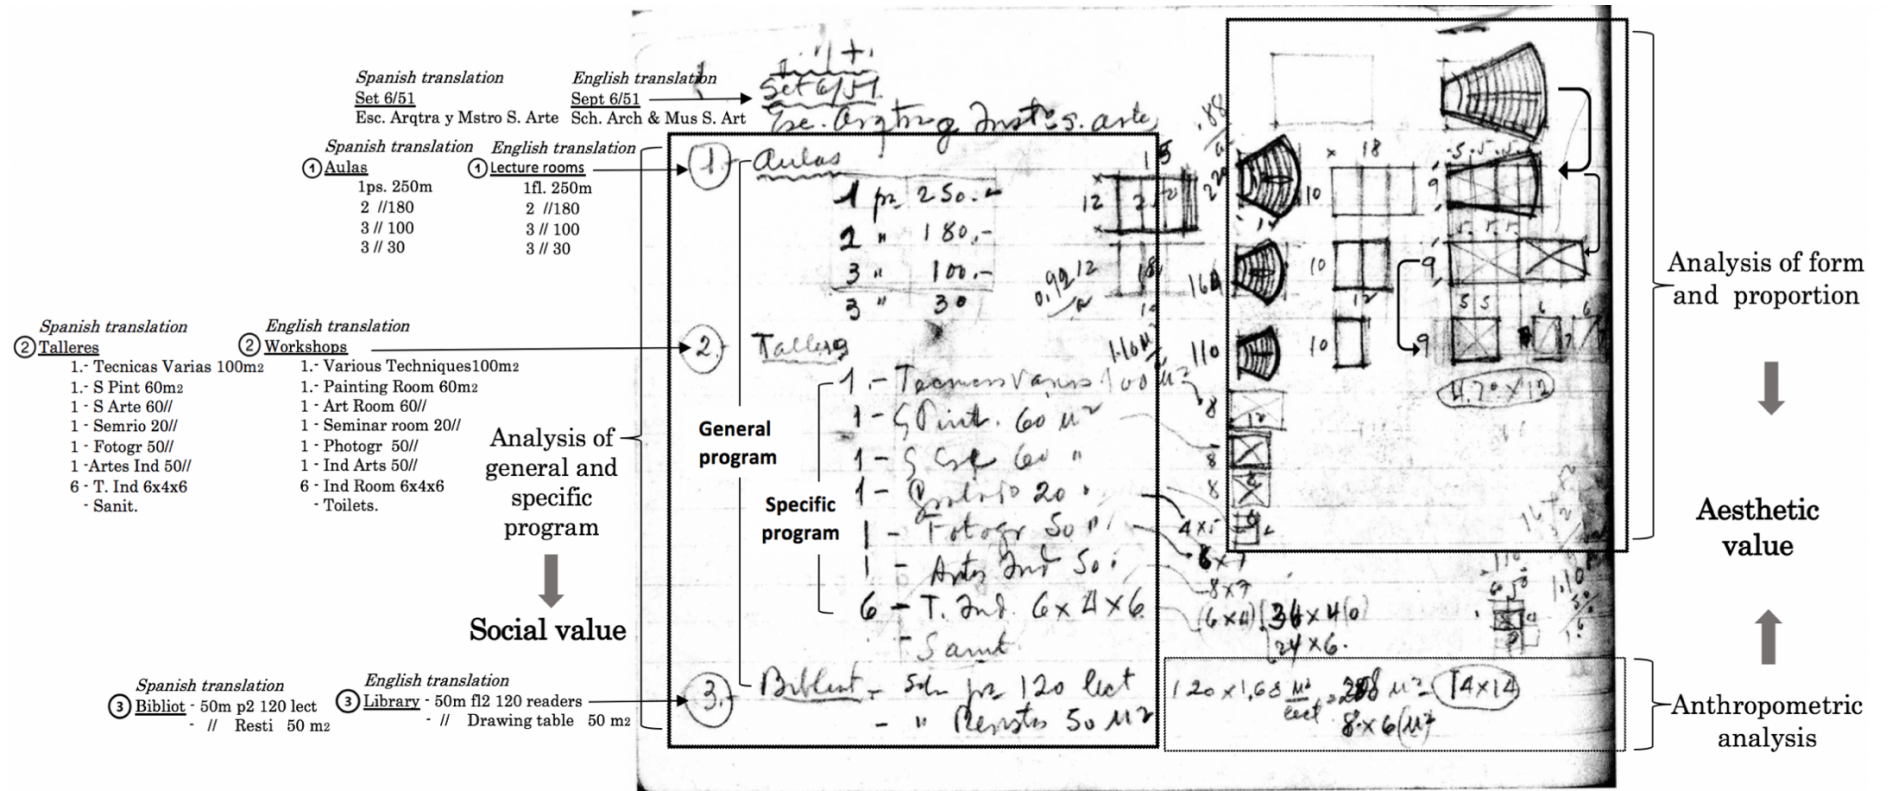 Spanish translation
Set 6/51
Esc. Arqtra y Mstro S. Arte
English translation
Sept 6/51
Sch. Arch & Mus S. Art
Spanish translation
① Aulas
1ps. 250m
2 //180
3 // 100
3 // 30
English translation
① Lecture rooms
1fl. 250m
2 //180
3 // 100
3 // 30
Spanish translation
② Talleres
1.- Tecnicas Varias 100m2
1.- S Pint 60m2
1 - S Arte 60//
1 - Semrio 20//
1 - Fotogr 50//
1 -Artes Ind 50//
6 - T. Ind 6x4x6
- Sanit.
English translation
② Workshops
1.- Various Techniques100m2
1.- Painting Room 60m2
1 - Art Room 60//
1 - Seminar room 20//
1 - Photogr 50//
1 - Ind Arts 50//
6 - Ind Room 6x4x6
- Toilets.
Analysis of
general and
specific
program
Social value
Spanish translation
③ Bibliot - 50m p2 120 lect
- // Resti 50 m2
English translation
③ Library - 50m fl2 120 readers
- // Drawing table 50 m2
General
program
Specific
program
Set 6/51
Esc. Arqtra
1. Aulas
1 250.-
2 " 180.-
3 " 100.-
3 " 30
2. Talleres
1.- Tecnicas Varias 100 M2
1 - S Pint. 60 M2
1 - S 60 "
1 - 20
1 - Fotogr 50
1 - Artes Ind 50
6 - T. Ind. 6 x 4 x 6
- Sanit.
3. Bibliot - 120 lect
- " 50 M2
12
.88
220
10
18
9
.5.5.5.
0.92
164
10
12
9
110
10
9
4.70 x 12
8
8
8
4x5
6x7
8x7
(6x4) 36x4
24x6.
120 x 1,68 M2
lect
14x14
8x6
Analysis of form
and proportion
Aesthetic
value
Anthropometric
analysis